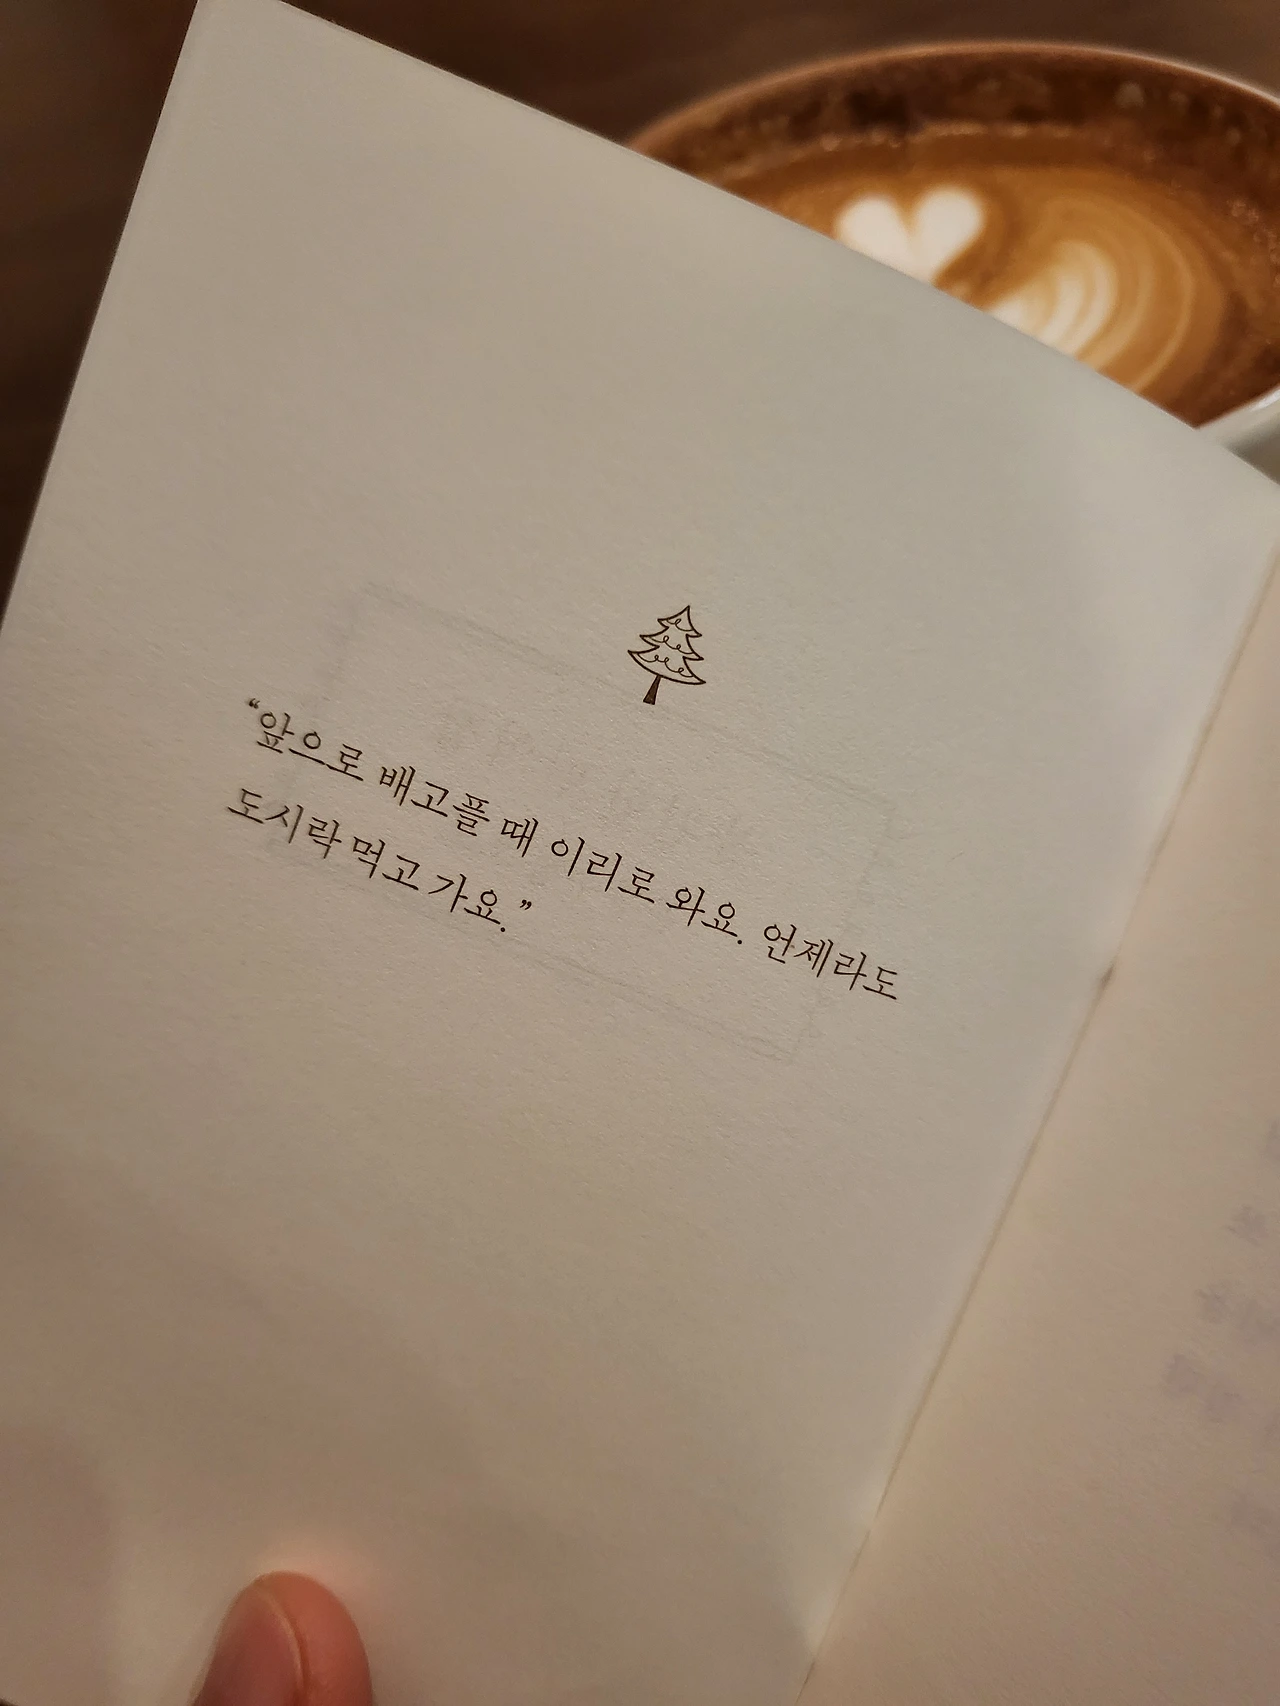 “앞으로 배고플 때 이리로 와요. 언제라도
도시락 먹고 가요.”